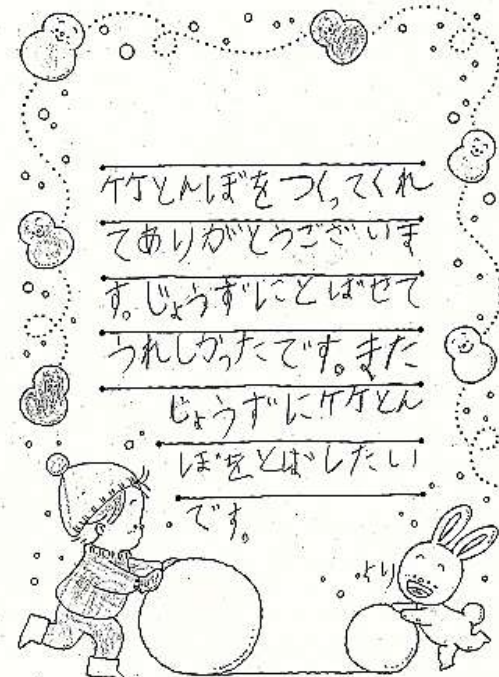 竹とんぼをつくってくれ
てありがとうございま
す。じょうずにとばせて
うれしかったです。また
じょうずに竹とん
ぼをとばしたい
です。
より